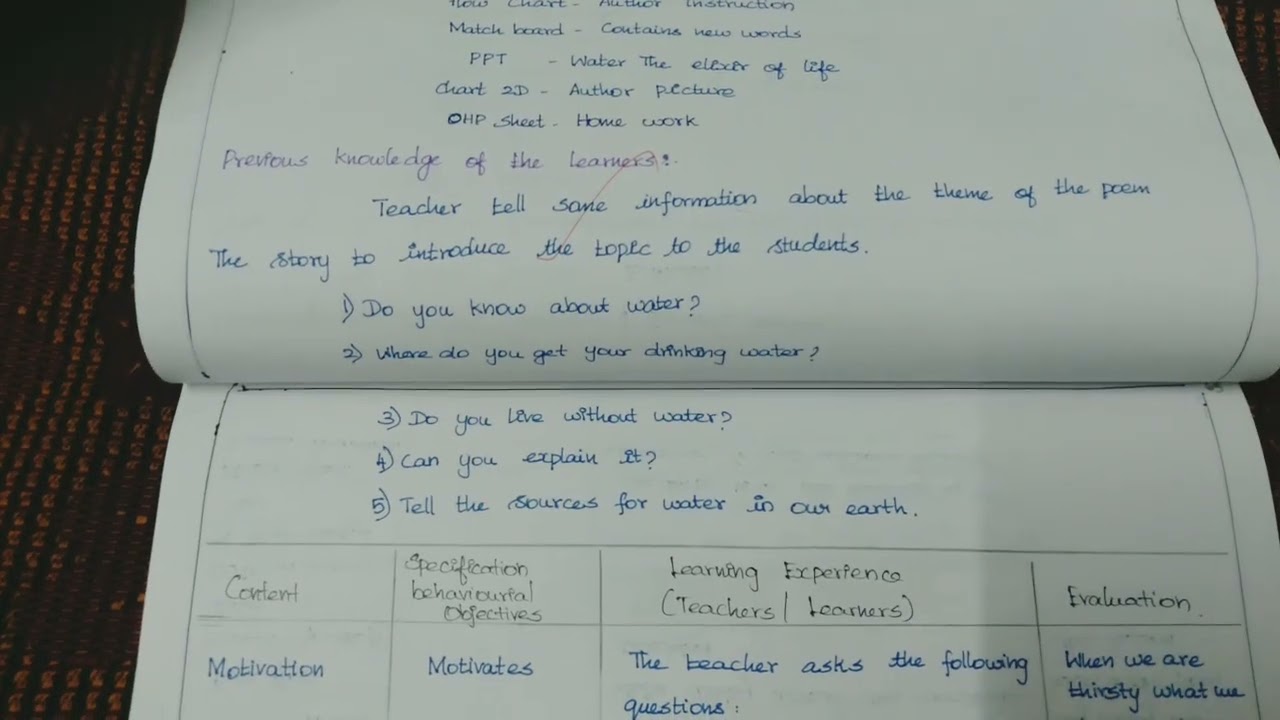 Flow Chart - Author Instruction
Match board - Contains new words
PPT - Water The elixer of life
Chart 2D - Author picture
OHP sheet - Home work
Previous knowledge of the learners:
Teacher tell some information about the theme of the poem
The story to introduce the topic to the students.
1) Do you know about water?
2) Where do you get your drinking water?
3) Do you live without water?
4) Can you explain it?
5) Tell the sources for water in our earth.
Content
Specification behaviourial Objectives
Learning Experience (Teachers / Learners)
Evaluation.
Motivation
Motivates
The teacher asks the following
questions:
When we are
thirsty what we